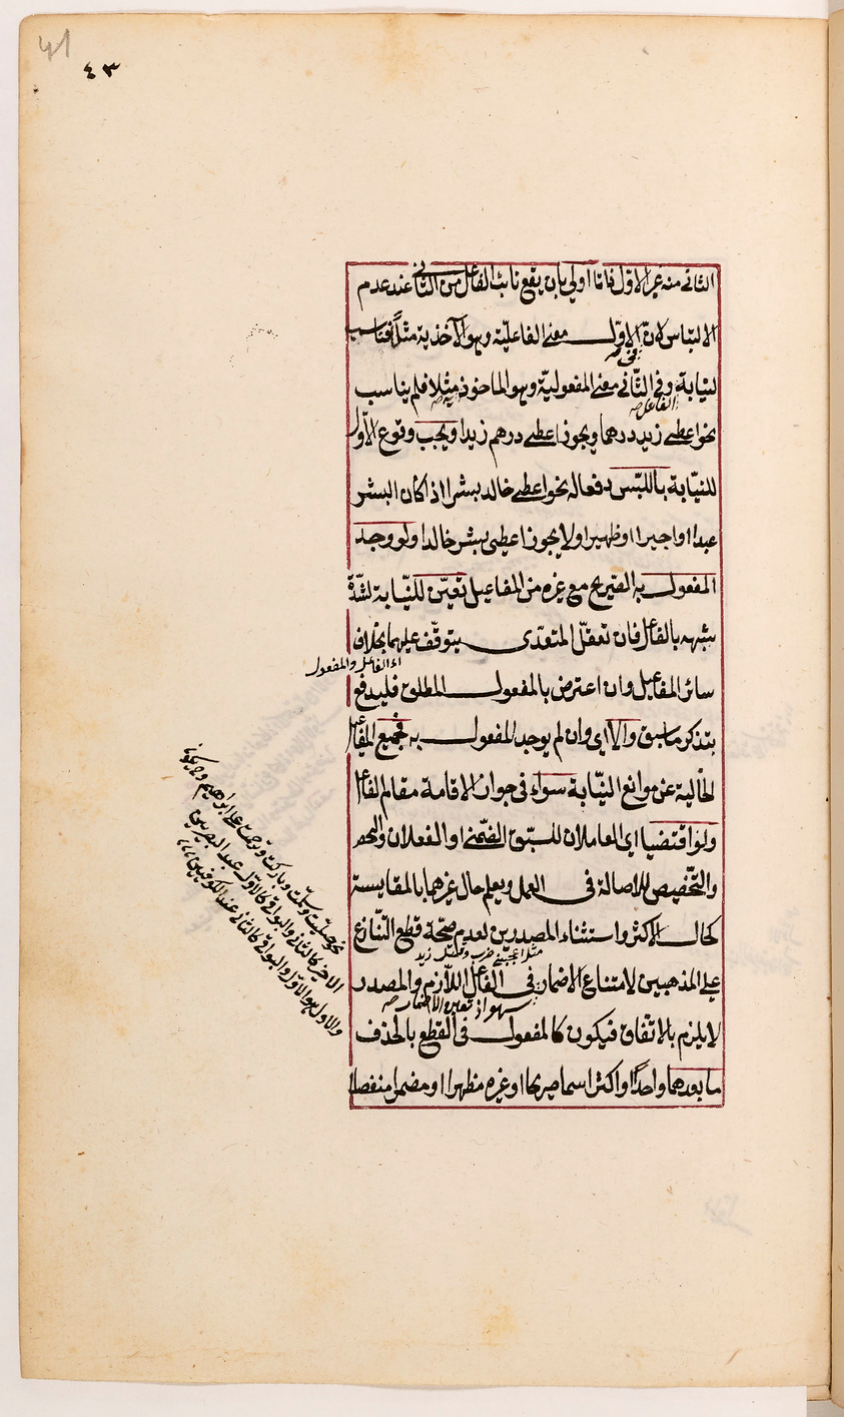 ٤٣
41
الثاني منه غير الاول فانما اولي بان يقع نائب الفاعل من الثاني عند عدم
الالتباس لان في الاول معنى الفاعلية وهو الآخذية مثلا فتناسب
لنيابة الفاعل وفي الثاني معنى المفعولية وهو الماخوذية مثلا فلم يناسب
نحو اعطي زيد درهما ويجوز اعطي درهم زيدا ويجب وقوع الاول
للنيابة باللبس دفعا له نحو اعطي خالد بشرا اذا كان البشر
عبدا او اجيرا او ظهيرا ولا يجوز اعطي بشر خالدا ولو وجد
المفعول به الصريح مع غيره من المفاعيل تعين للنيابة لشدة
شبهه بالفاعل فان تعقل المتعدى يتوقف عليهما بخلاف
اى الفاعل والمفعول
سائر المفاعيل وان اعترض بالمفعول المطلق فليدفع
بتذكر ما سبق والا اى وان لم يوجد المفعول به فجميع المفاعيل
الخالية عن موانع النيابة سواء فى جواز الاقامة مقام الفاعل
ولو اقتضيا اى العاملان للسبق الضمني او الفعلان والحصر
والتخصيص للاصالة فى العمل ويعلم حال غيرهما بالمقايسة
كحال الاكثر واستثناء المصدرين لعدم صحة قطع التنازع
مثل اعجبني ضرب وقتل زيد
على المذهبين لامتناع الاضمار فى الفاعل اللازم والمصدر
سهو اذ تعين الاظهار
لا يلزم بالاتفاق فيكون كالمفعول فى القطع بالحذف
ما بعدهما واحدا او اكثر اسما صريحا او غيره مظهرا او مضمرا منفصلا
نحو صليت وسلمت وباركت وترحمت على ابراهيم
الاخير كالثاني والبواقى كالاول عند البصريين
والاول هو الاول والبواقى كالثاني عند الكوفيين